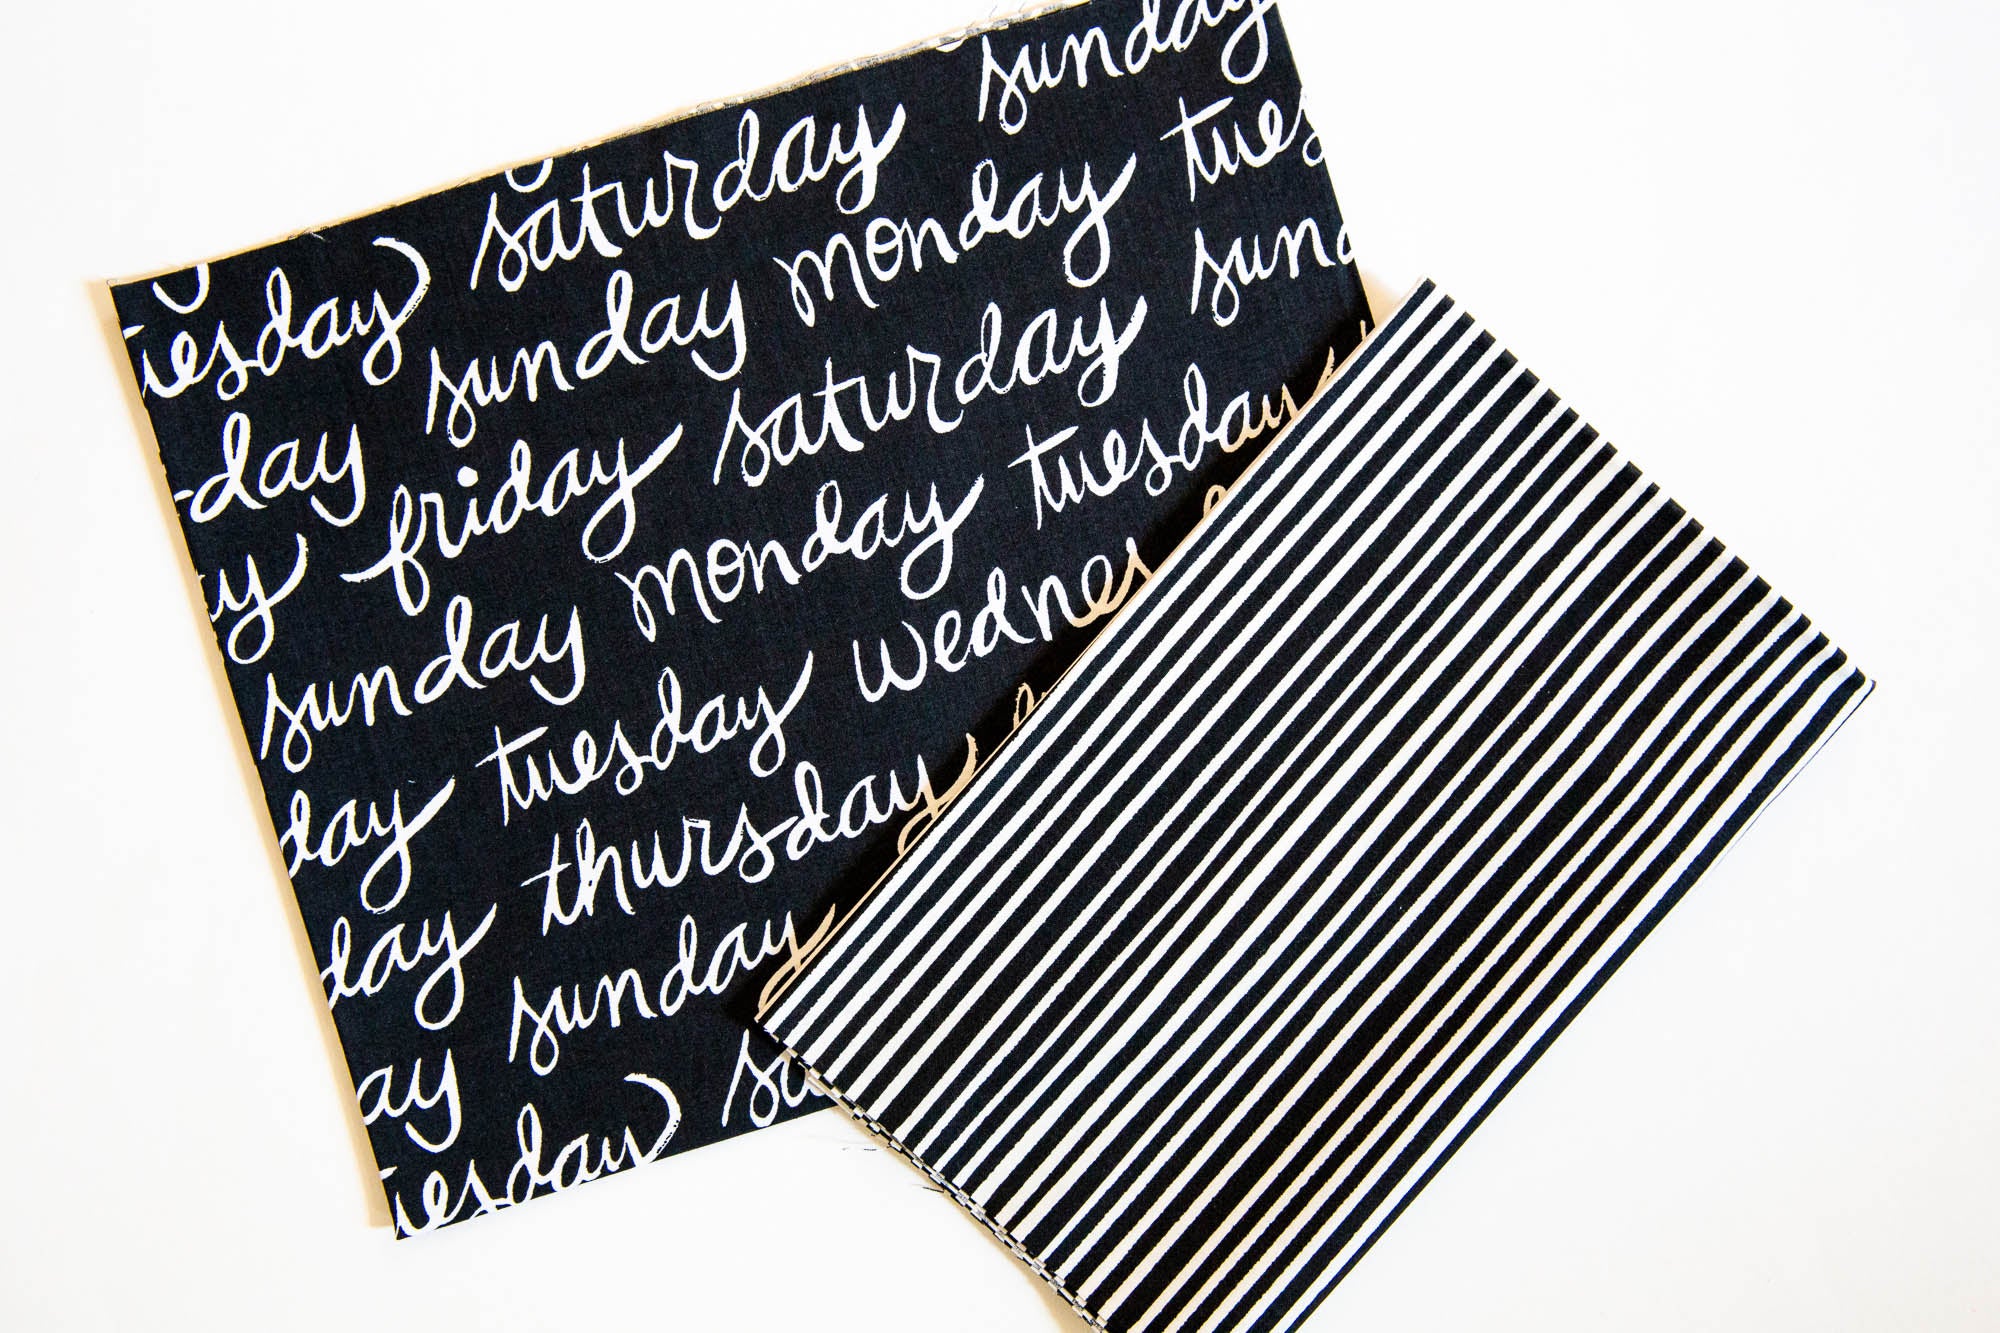 iesday saturday sunday
day sunday monday tues
y friday saturday sun
sunday monday tuesday
day tuesday wednes
day thursday
ay sunday
iesday sa